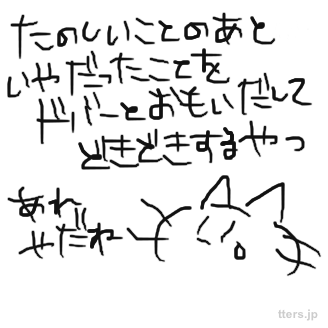 たのしいことのあと
いやだったことを
ドバーとおもいだして
どきどきするやつ
あれ
やだねー
tters.jp